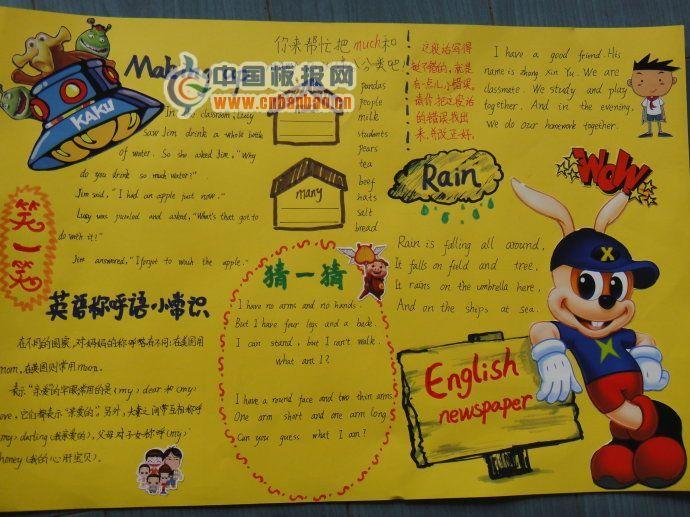 KAKU
中国板报网
www.cnbanbao.cn
In the classroom, Lucy
saw Jim drink a whole bottle
of water. So she asked Jim, "Why
do you drink so much water?"
Jim said, "I had an apple just now."
Lucy was puzzled and asked, "What's that got to
do with it?"
Jim answered, "I forgot to wash the apple."
笑一笑
你来帮忙把much和
分类吧!
many
pandas
people
milk
students
pears
tea
beef
hats
salt
bread
这段话写得
挺不错的,就是
有一点儿小错误,
请你把这段话
的错误找出
来,并改正好。
I have a good friend. His
name is Zhang Xin Yu. We are
classmate. We study and play
together. And in the evening,
We do our homework together.
Rain
WOW
Rain is falling all around,
It falls on field and tree,
It rains on the umbrella here,
And on the ships at sea.
猜一猜
I have no arms and no hands.
But I have four legs and a back.
I can stand, but I can't walk.
What am I?
I have a round face and two thin arms.
One arm short and one arm long.
Can you guess what I am?
英语称呼语小常识
在不同的国家,对妈妈的称呼略有不同:在美国用
mom,在英国则常用mum.
表示"亲爱的"字眼常用的是(my) dear 和(my)
love,它们都表示"亲爱的"。另外,夫妻之间常互相称呼
(my) darling(我亲爱的),父母对子女称呼(my)
honey(我的心肝宝贝).
English
newspaper
X